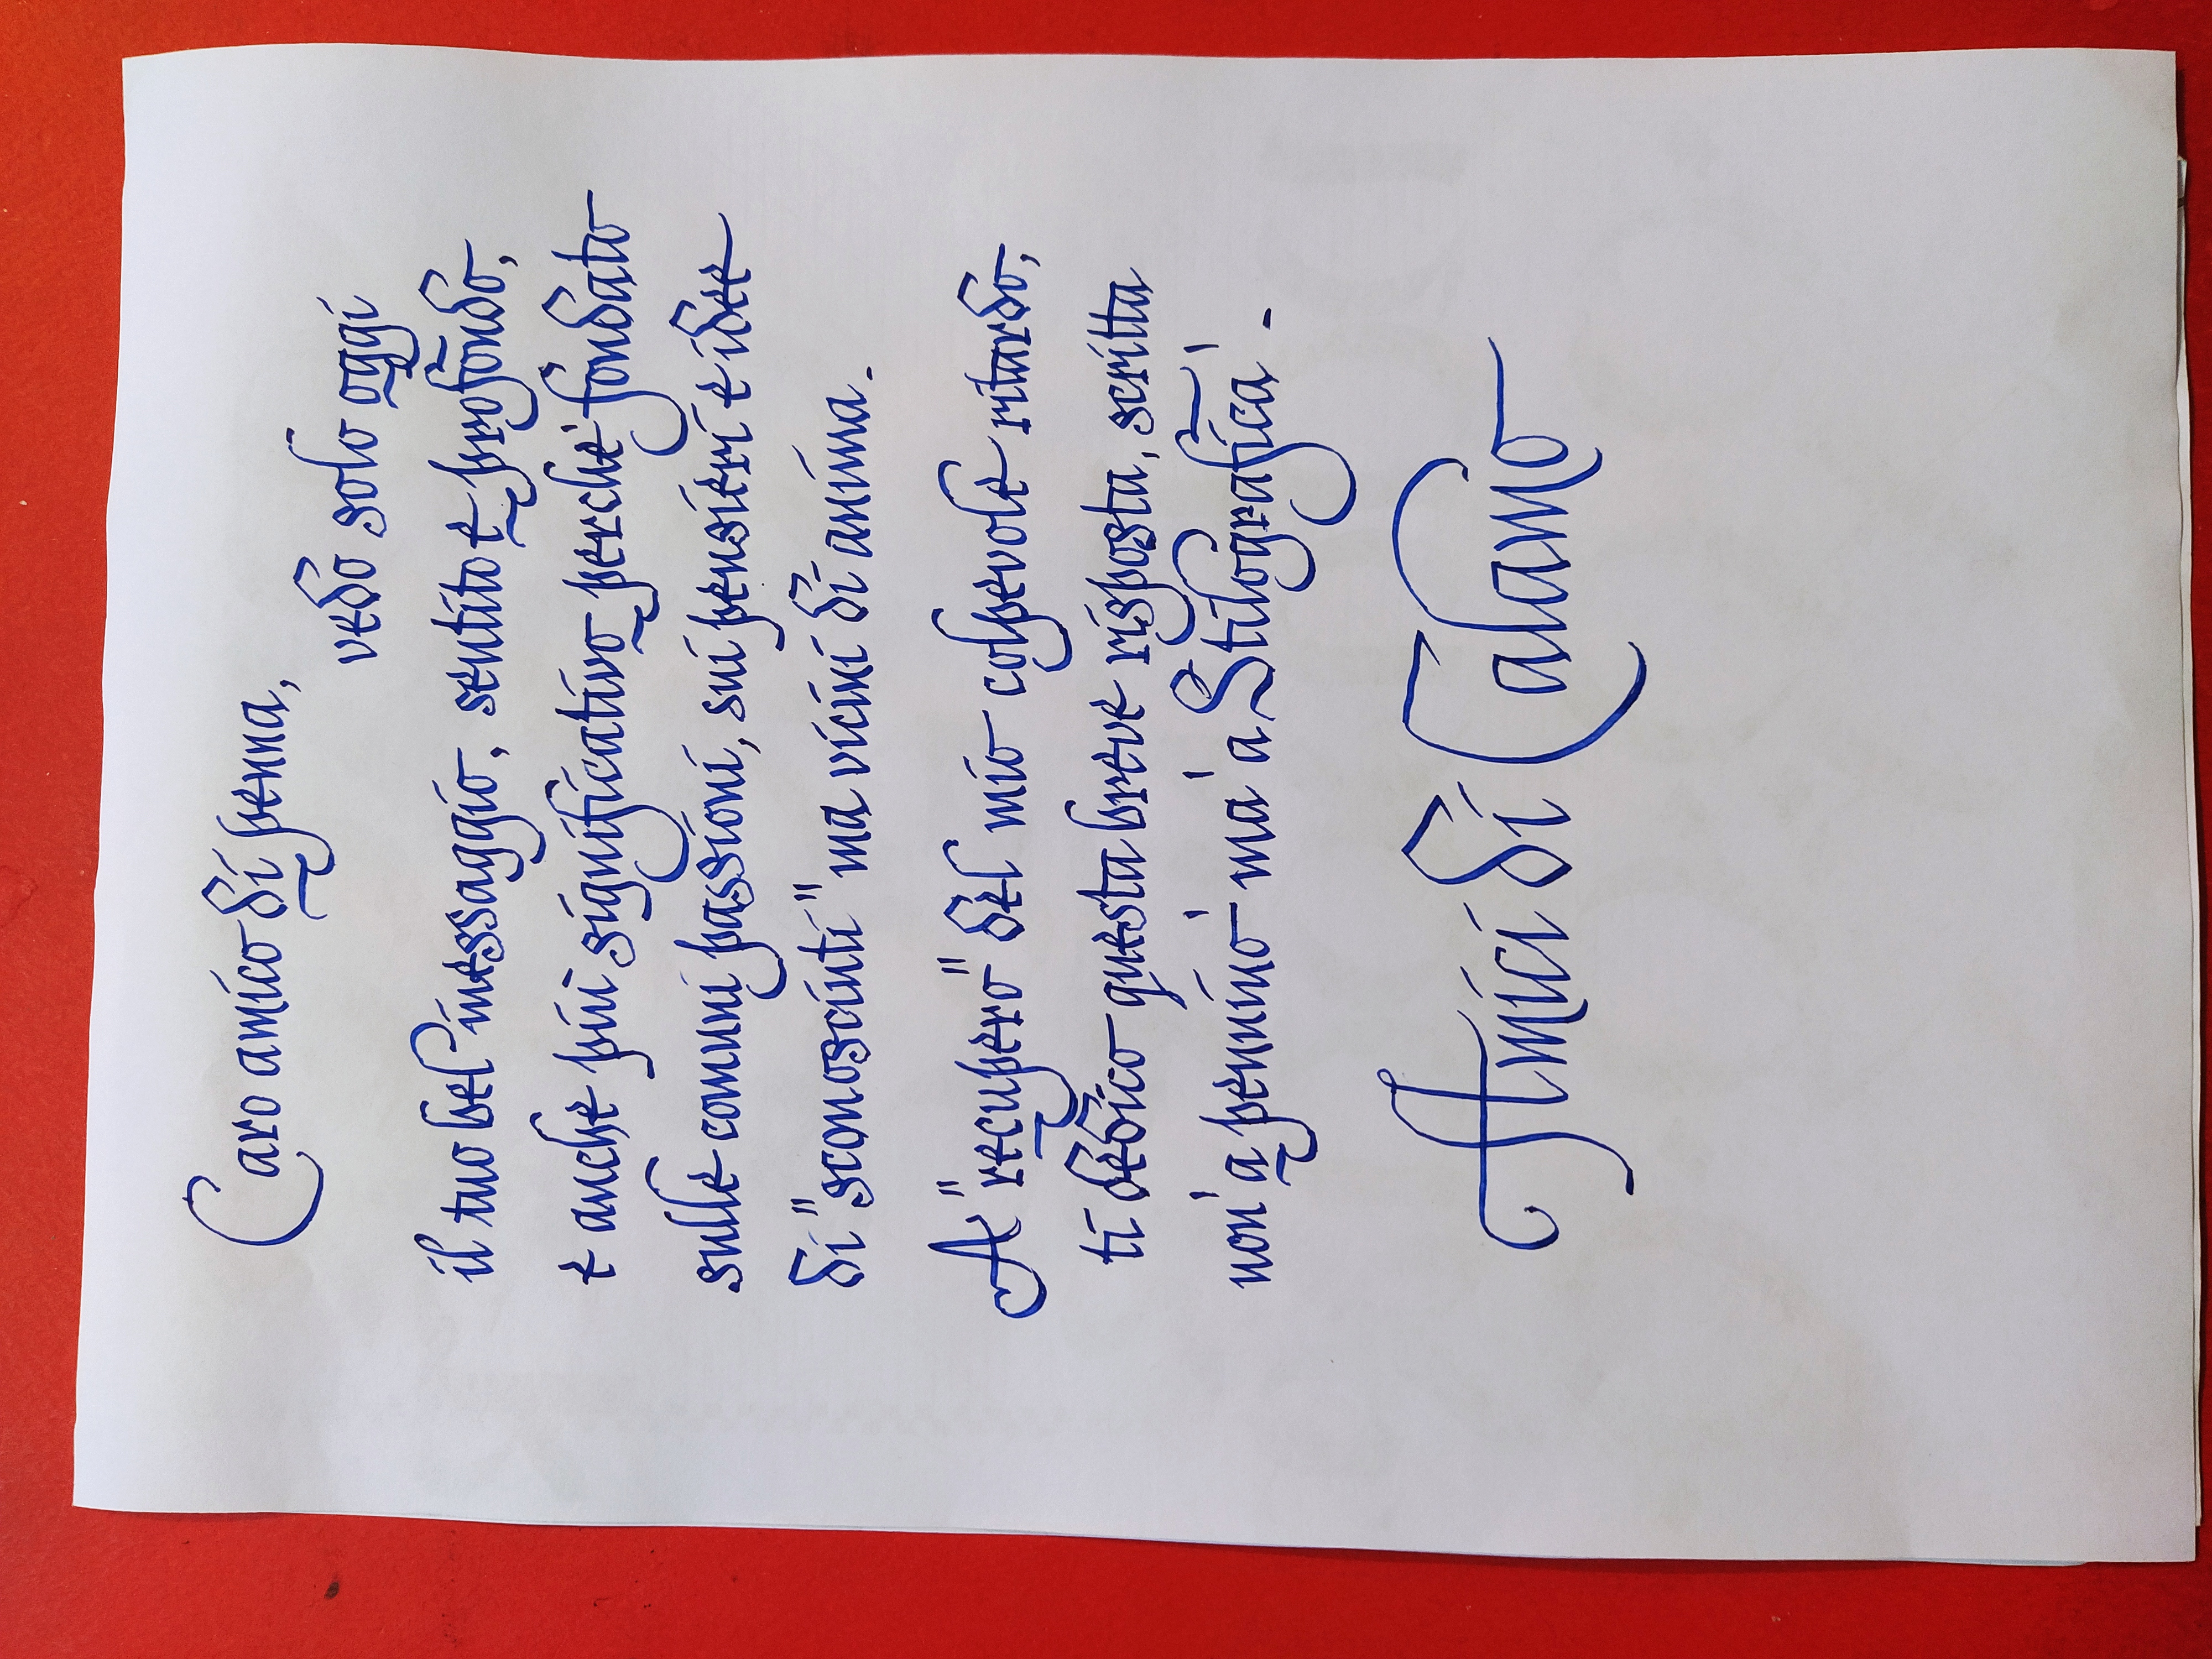 Caro amico di penna,
vedo solo oggi
il tuo bel messaggio, sentito e profondo,
e anche più significativo perché fondato
sulle comuni passioni, sui pensieri e idee
di "sconoscinti" ma vicini di anima.
A "recupero" del mio colpevole ritardo,
ti dedico questa breve risposta, scritta
non 'a pennino' ma 'a Stilografica'.
Amici di Calamo